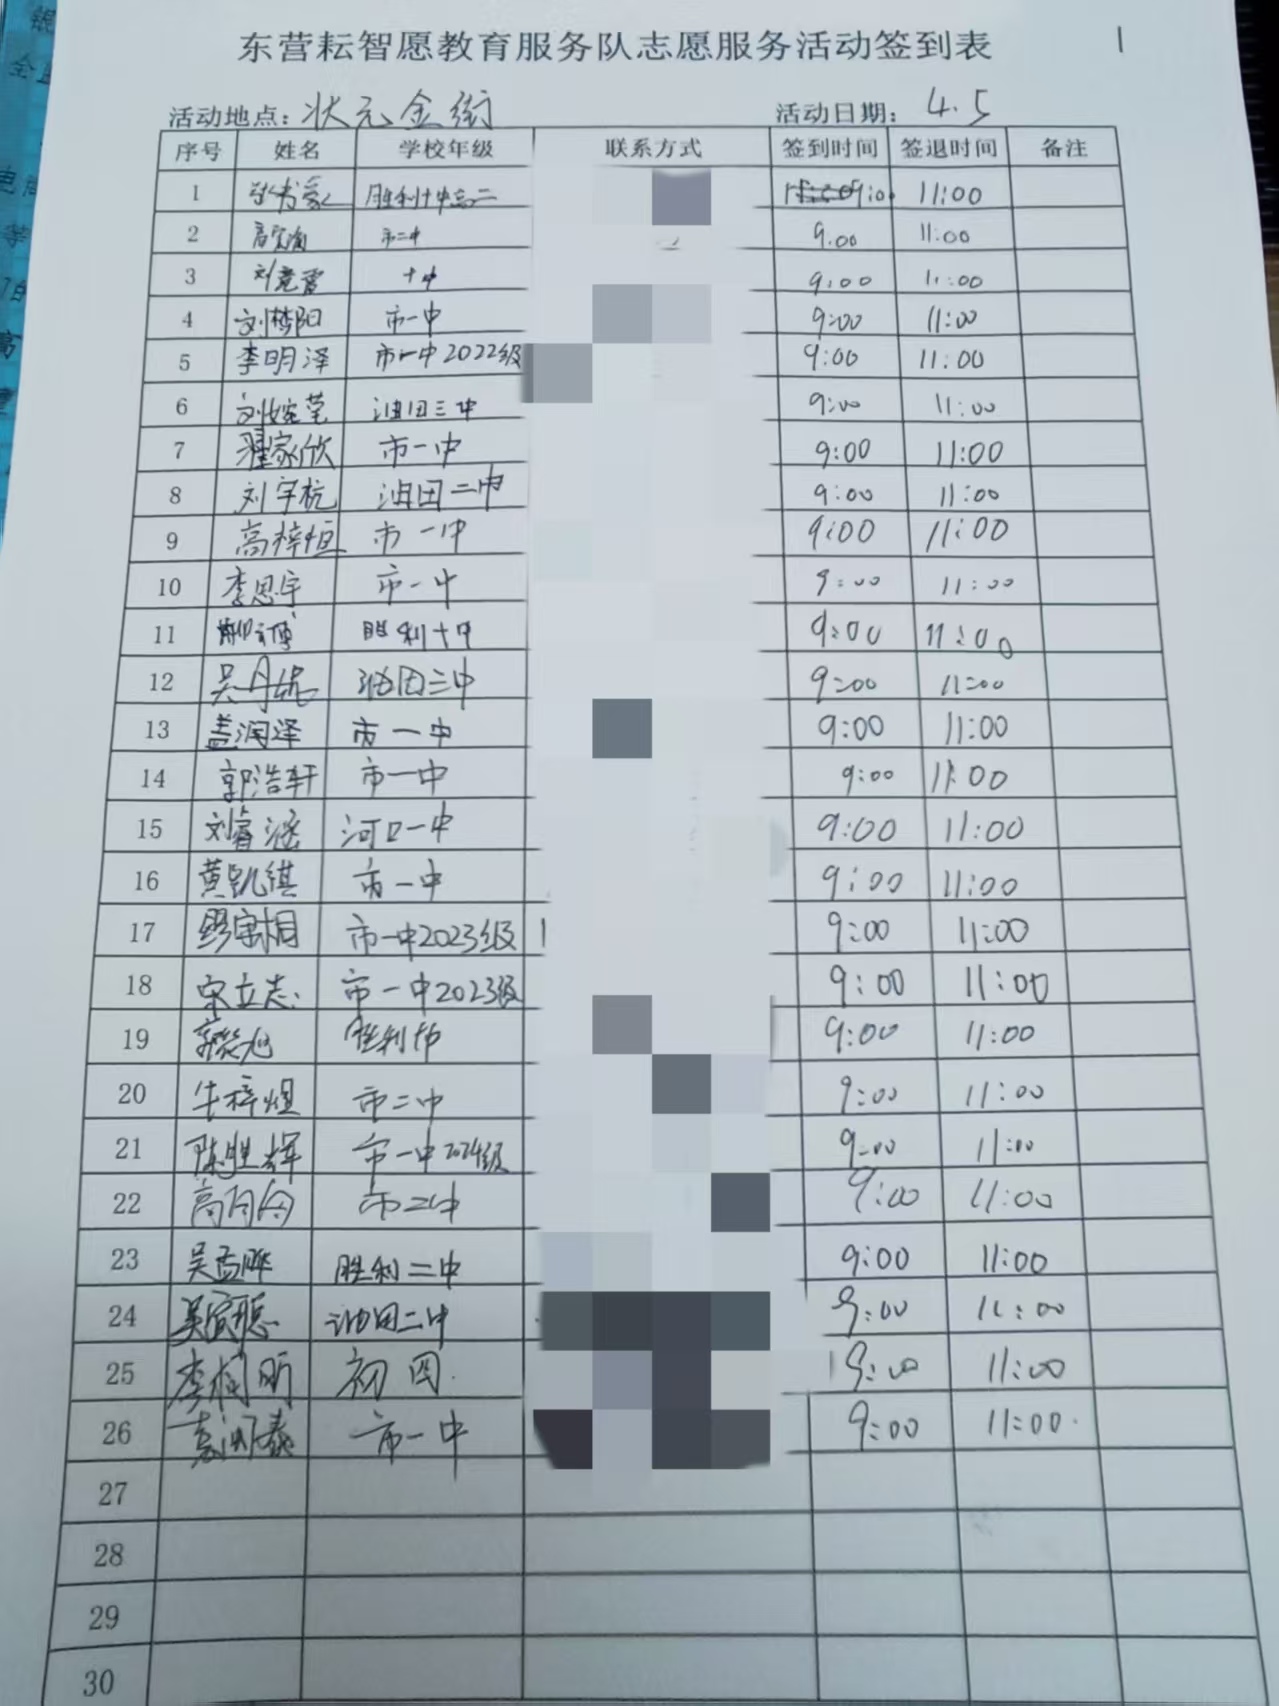 东营耘智愿教育服务队志愿服务活动签到表 1
活动地点：状元金街 活动日期：4.5
序号 姓名 学校年级 联系方式 签到时间 签退时间 备注
1 胜利十中高二 9:00 11:00
2 市二中 9.00 11:00
3 刘竞雷 十中 9:00 11:00
4 刘梦阳 市一中 9:00 11:00
5 李明泽 市一中2022级 9:00 11:00
6 刘婉莹 油田三中 9:00 11:00
7 翟家欣 市一中 9:00 11:00
8 刘宇杭 油田二中 9:00 11:00
9 高梓恒 市一中 9:00 11:00
10 李思宇 市一中 9:00 11:00
11 胜利十中 9:00 11:00
12 吴丹妮 油田三中 9:00 11:00
13 盖润泽 市一中 9:00 11:00
14 郭浩轩 市一中 9:00 11:00
15 刘睿涵 河口一中 9:00 11:00
16 黄凯祺 市一中 9:00 11:00
17 市一中2023级 9:00 11:00
18 宋立志 市一中2023级 9:00 11:00
19 胜利 9:00 11:00
20 牛梓煜 市二中 9:00 11:00
21 陈胜辉 市一中2024级 9:00 11:00
22 市二中 9:00 11:00
23 吴孟晔 胜利二中 9:00 11:00
24 油田二中 9:00 11:00
25 李 昕 初四. 9:00 11:00
26 市一中 9:00 11:00.
27
28
29
30
全
电